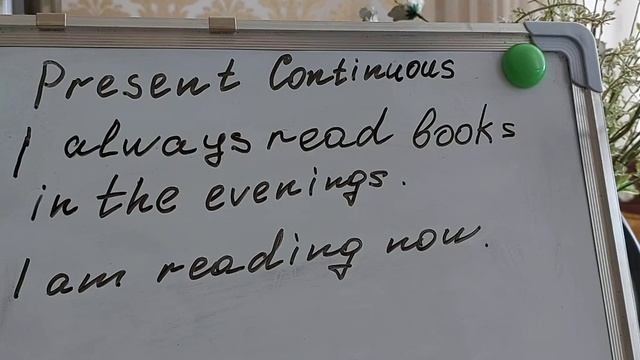 Present Continuous
I always read books
in the evenings.
I am reading now.